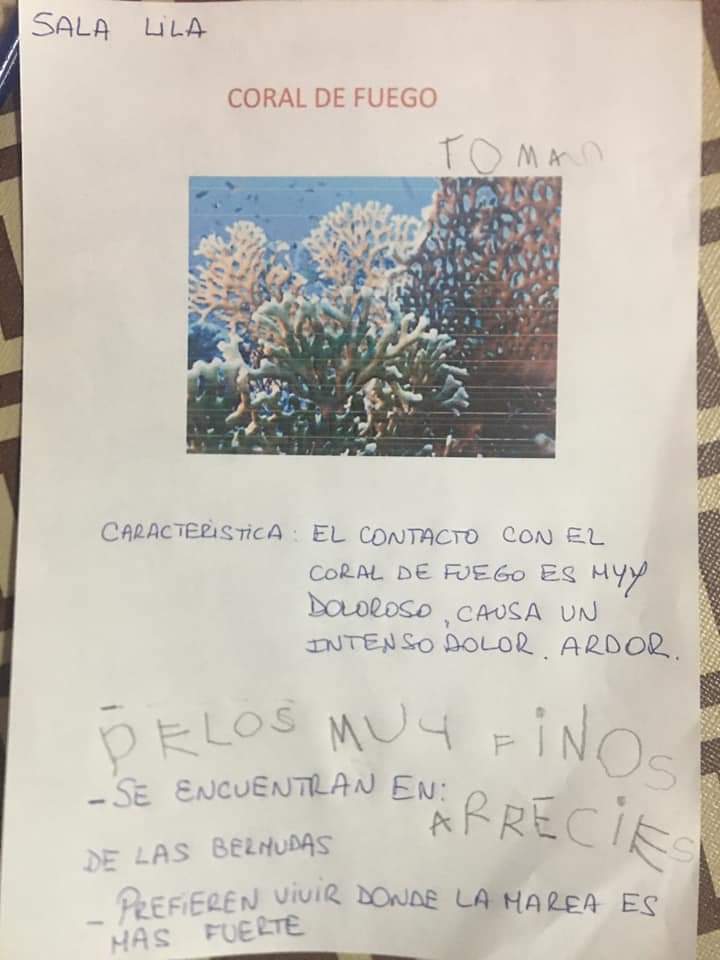 SALA LILA
CORAL DE FUEGO
CARACTERISTICA: EL CONTACTO CON EL
CORAL DE FUEGO ES MUY
DOLOROSO, CAUSA UN
INTENSO DOLOR. ARDOR.
- PELOS MUY FINOS
- SE ENCUENTRAN EN:
ARRECIFES
DE LAS BERMUDAS
- PREFIEREN VIVIR DONDE LA MAREA ES
MAS FUERTE